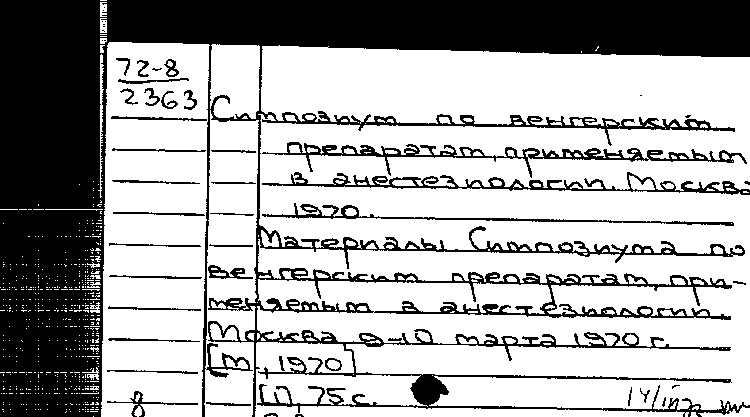 72-8
2363
Симпозиум по венгерским
препаратам, применяемым
в анестезиологии. Москва
1970.
Материалы Симпозиума по
венгерским препаратам, при-
меняемым в анестезиологии.
Москва, 9-10 марта 1970 г.
[М., 1970]
[1], 75 с.
8